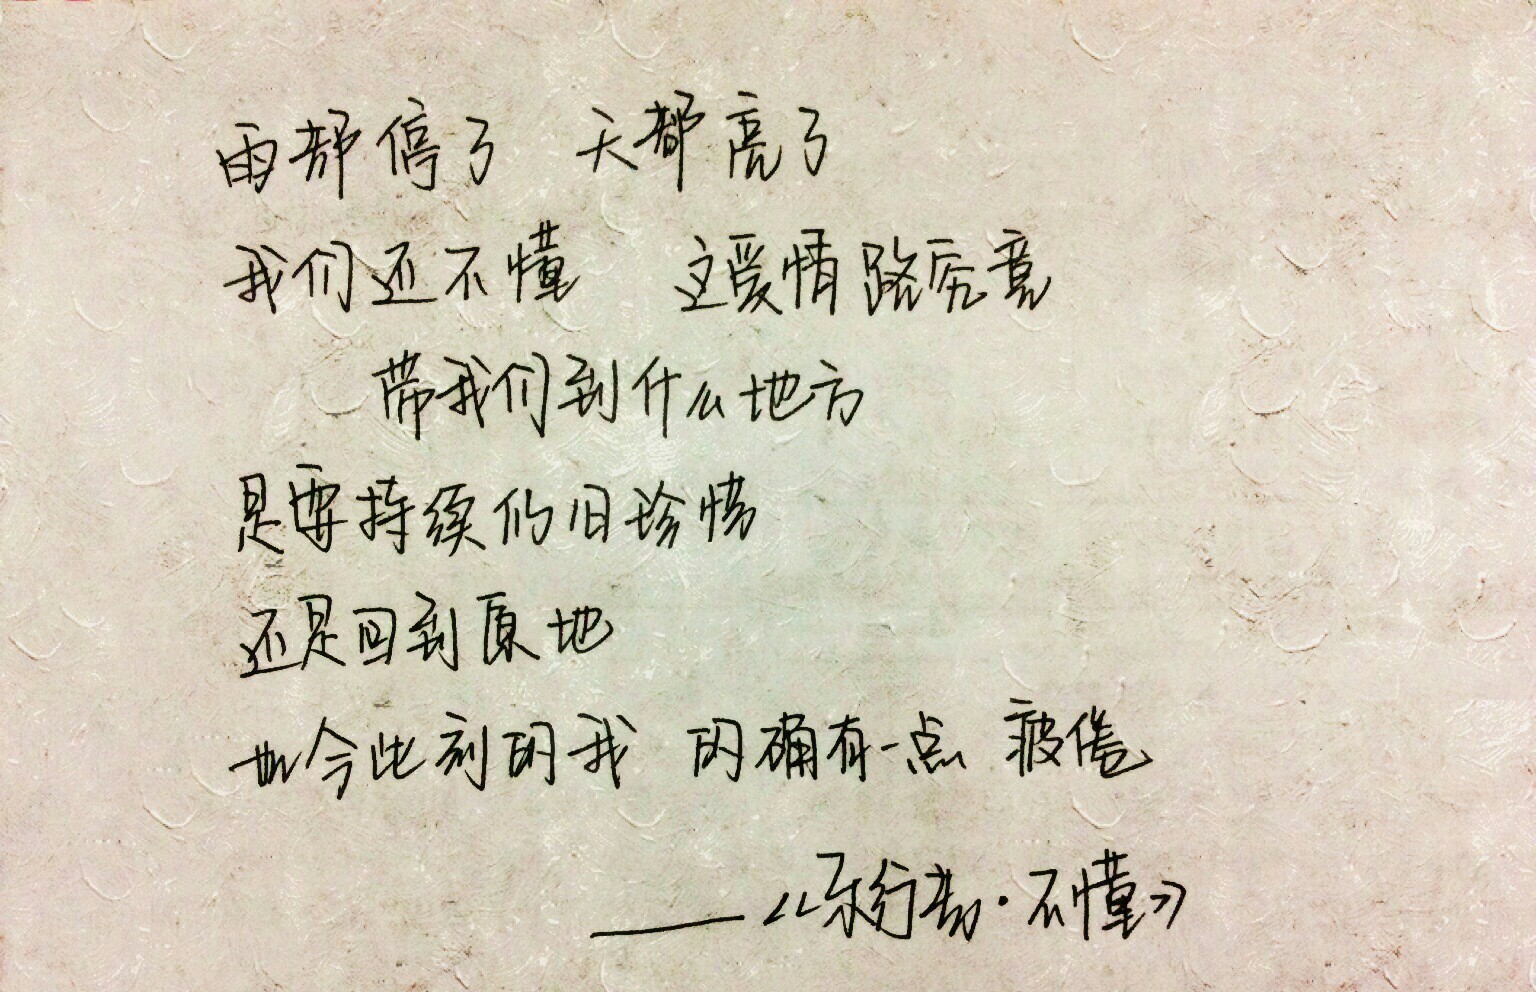 雨都停了 天都亮了
我们还不懂 这爱情路究竟
带我们到什么地方
是要持续仍旧珍惜
还是回到原地
如今此刻的我 的确有一点 疲倦
——《乐行者·不懂》